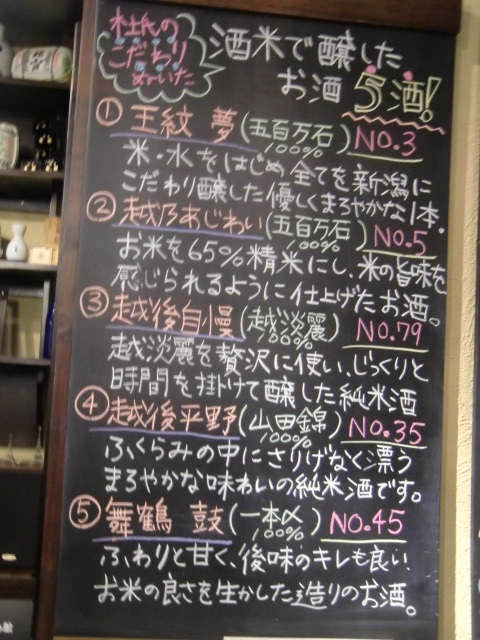 杜氏の
こだわり
ぬいた
酒米で醸した
お酒 5酒!
① 王紋 夢(五百万石)100% NO.3
米・水をはじめ全てを新潟に
こだわり醸した優しくまろやかな1本。
② 越乃あじわい(五百万石)100% NO.5
お米を65%精米にし、米の旨味を
感じられるように仕上げたお酒。
③ 越後自慢(越淡麗)100% NO.79
越淡麗を贅沢に使い、じっくりと
時間を掛けて醸した純米酒
④ 越後平野(山田錦)100% NO.35
ふくらみの中にさりげなく漂う
まろやかな味わいの純米酒です。
⑤ 舞鶴 鼓(一本〆)100% NO.45
ふわりと甘く、後味のキレも良い
お米の良さを生かした造りのお酒。